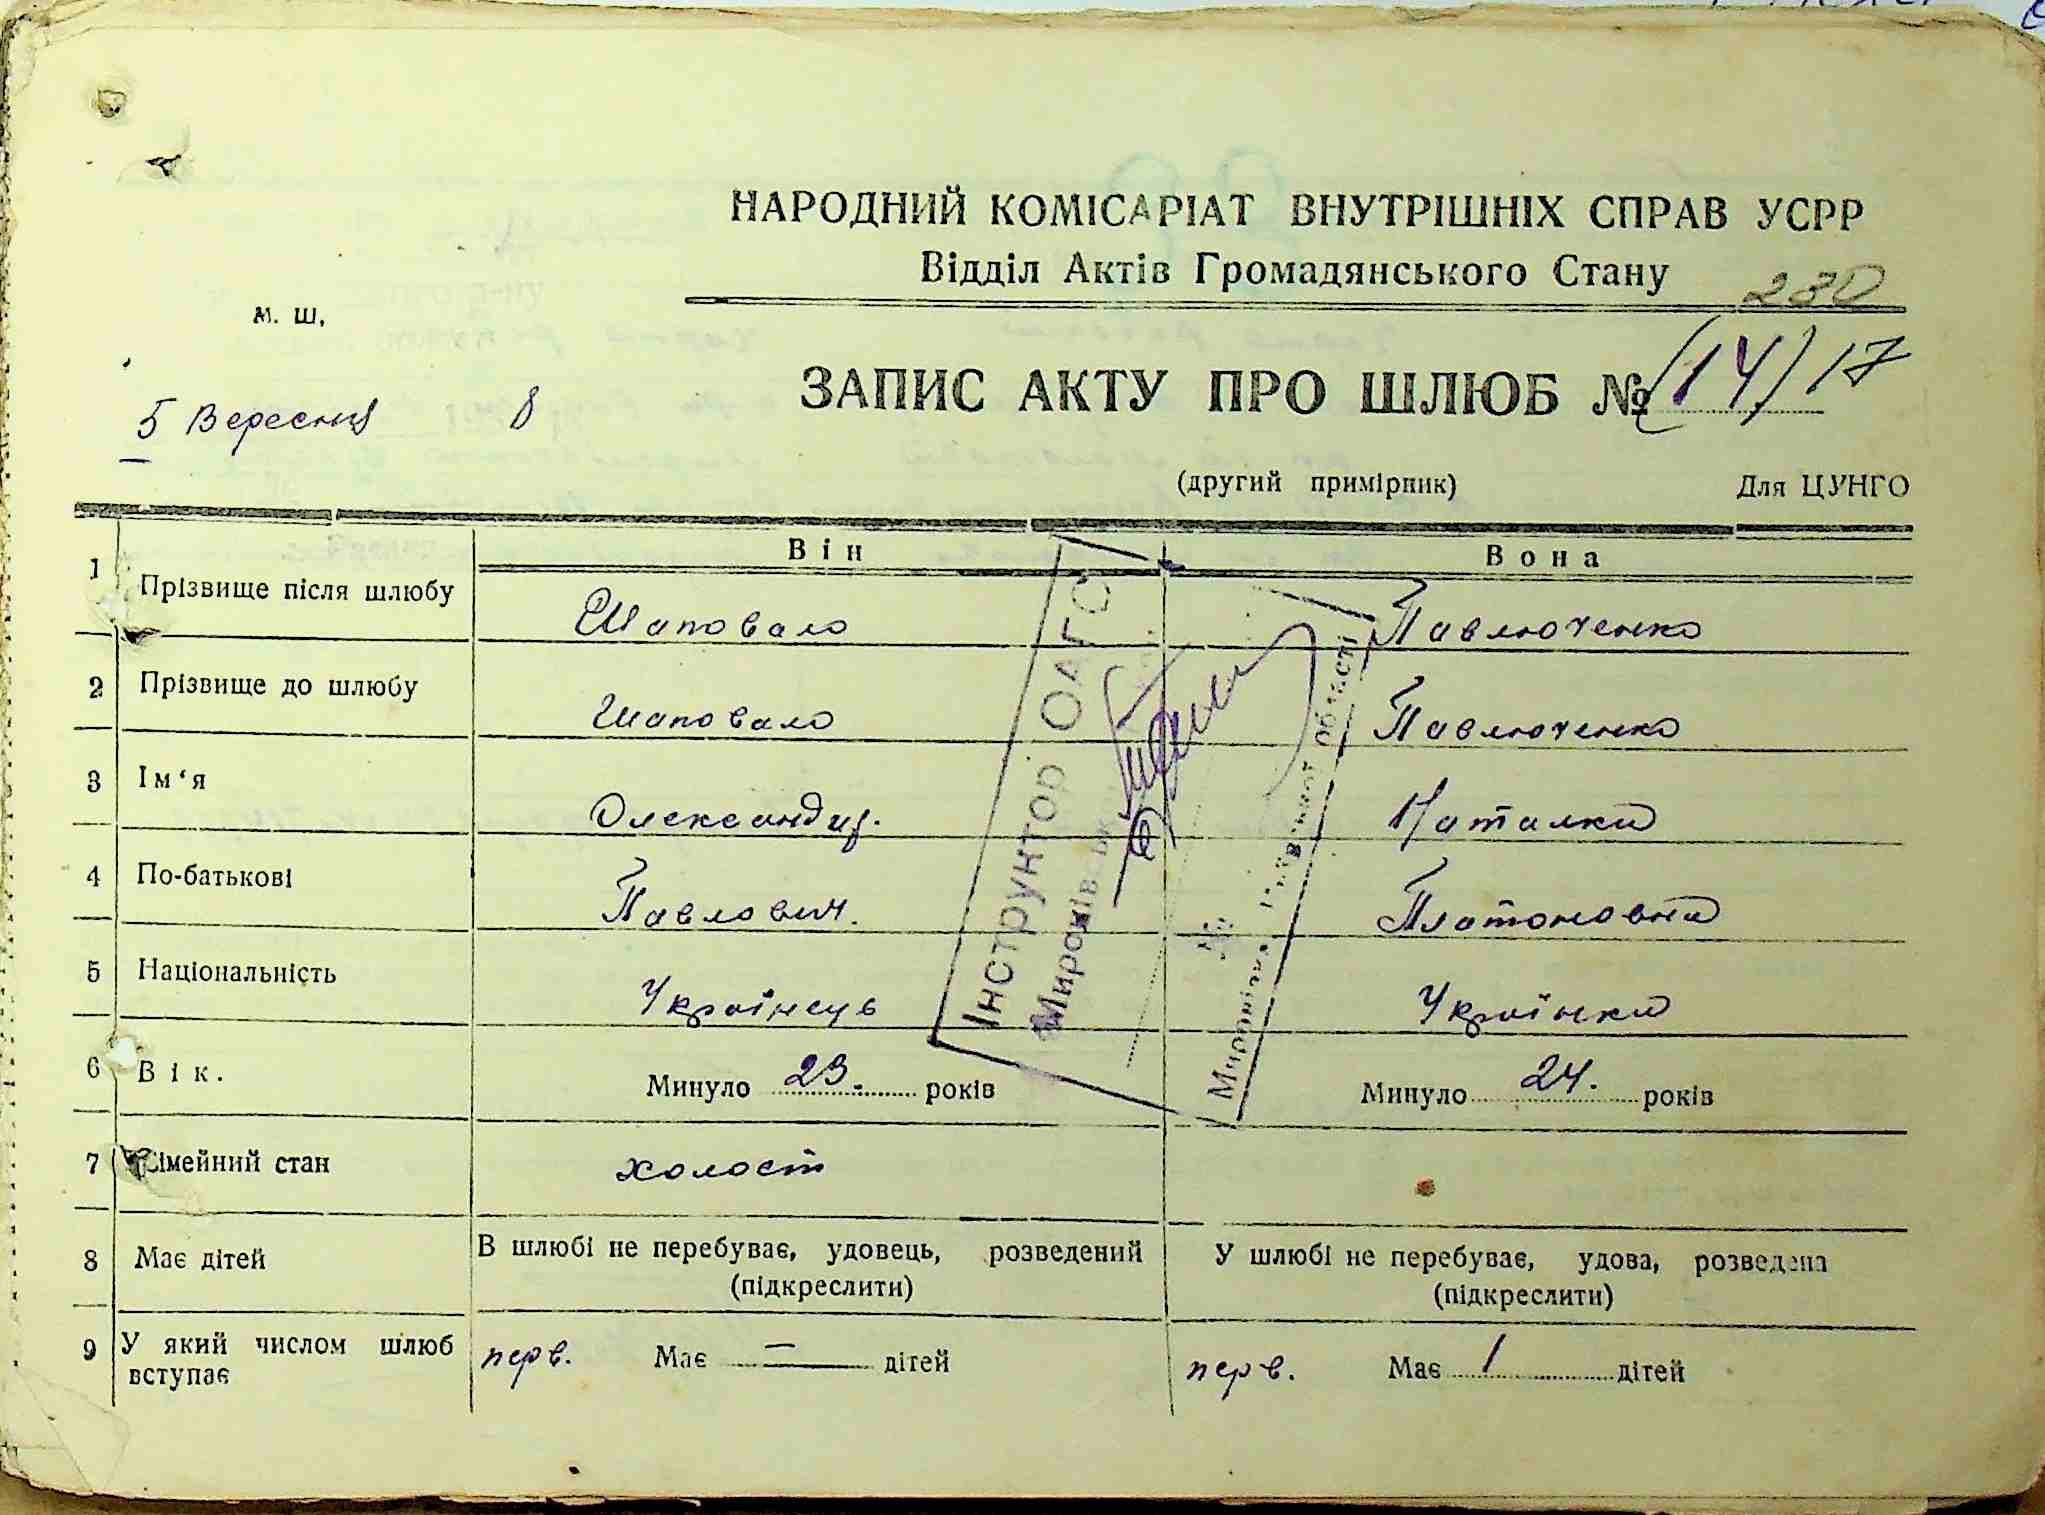 НАРОДНИЙ КОМІСАРІАТ ВНУТРІШНІХ СПРАВ УСРР
Відділ Актів Громадянського Стану
230
м. ш,
ЗАПИС АКТУ ПРО ШЛЮБ № (14) 17
5 Вересня 8
(другий примірник) Для ЦУНГО
Він Вона
1 Прізвище після шлюбу Шаповало Павлюченко
2 Прізвище до шлюбу Шаповало Павлюченко
3 Ім‘я Олександр. Наталка
4 По-батькові Павлович. Платоновна
5 Національність Українець Українка
6 Вік. Минуло 23. років Минуло 24. років
7 Сімейний стан холост
8 Має дітей В шлюбі не перебуває, удовець, розведений У шлюбі не перебуває, удова, розведена
(підкреслити) (підкреслити)
9 У який числом шлюб вступає перв. Має — дітей перв. Має 1 дітей
Інструктор ОАГС